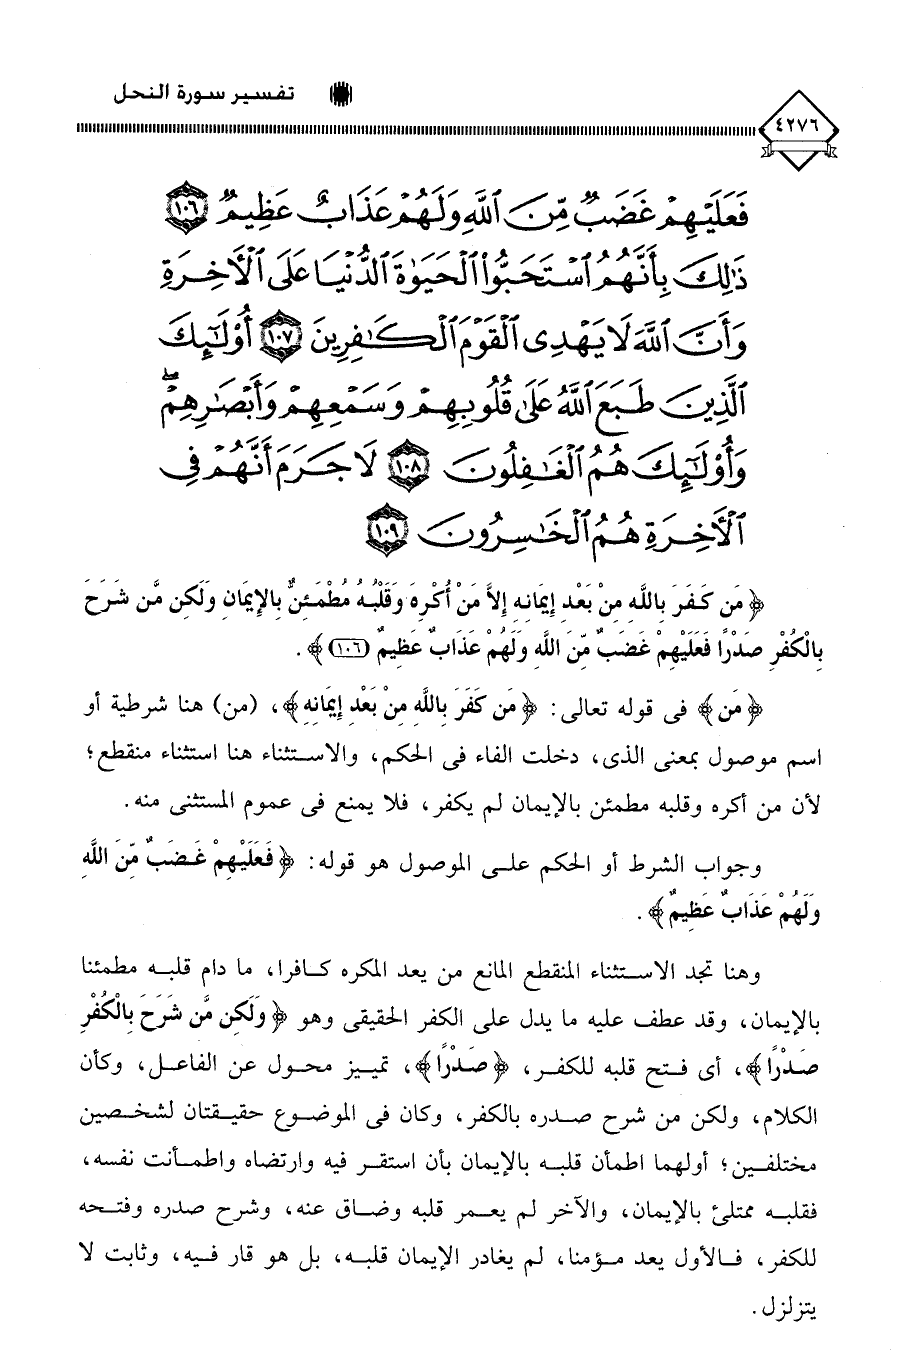 تفسير سورة النحل
٤٢٧٦
فَعَلَيْهِمْ غَضَبٌ مِّنَ ٱللَّهِ وَلَهُمْ عَذَابٌ عَظِيمٌ ١٠٦
ذَٰلِكَ بِأَنَّهُمُ ٱسْتَحَبُّوا۟ ٱلْحَيَوٰةَ ٱلدُّنْيَا عَلَى ٱلْأَخِرَةِ
وَأَنَّ ٱللَّهَ لَا يَهْدِى ٱلْقَوْمَ ٱلْكَـٰفِرِينَ ١٠٧ أُو۟لَـٰٓئِكَ
ٱلَّذِينَ طَبَعَ ٱللَّهُ عَلَىٰ قُلُوبِهِمْ وَسَمْعِهِمْ وَأَبْصَـٰرِهِمْ ۖ
وَأُو۟لَـٰٓئِكَ هُمُ ٱلْغَـٰفِلُونَ ١٠٨ لَا جَرَمَ أَنَّهُمْ فِى
ٱلْأَخِرَةِ هُمُ ٱلْخَـٰسِرُونَ ١٠٩
﴿ مَن كَفَرَ بِاللَّهِ مِنْ بَعْدِ إِيمَانِهِ إِلاَّ مَنْ أُكْرِهَ وَقَلْبُهُ مُطْمَئِنٌّ بِالإِيمَانِ وَلَكِن مَّن شَرَحَ
بِالْكُفْرِ صَدْرًا فَعَلَيْهِمْ غَضَبٌ مِّنَ اللَّهِ وَلَهُمْ عَذَابٌ عَظِيمٌ (١٠٦) ﴾ .
﴿ مَن ﴾ فى قوله تعالى: ﴿ مَن كَفَرَ بِاللَّهِ مِنْ بَعْدِ إِيمَانِهِ ﴾، (من) هنا شرطية أو
اسم موصول بمعنى الذى، دخلت الفاء فى الحكم، والاستثناء هنا استثناء منقطع؛
لأن من أكره وقلبه مطمئن بالإيمان لم يكفر، فلا يمنع فى عموم المستثنى منه.
وجواب الشرط أو الحكم على الموصول هو قوله: ﴿ فَعَلَيْهِمْ غَضَبٌ مِّنَ اللَّهِ
وَلَهُمْ عَذَابٌ عَظِيمٌ ﴾ .
وهنا تجد الاستثناء المنقطع المانع من يعد المكره كافرا، ما دام قلبه مطمئنا
بالإيمان، وقد عطف عليه ما يدل على الكفر الحقيقى وهو ﴿ وَلَكِن مَّن شَرَحَ بِالْكُفْرِ
صَدْرًا ﴾، أى فتح قلبه للكفر، ﴿ صَدْرًا ﴾، تمييز محول عن الفاعل، وكأن
الكلام، ولكن من شرح صدره بالكفر، وكان فى الموضوع حقيقتان لشخصين
مختلفين؛ أولهما اطمأن قلبه بالإيمان بأن استقر فيه وارتضاه واطمأنت نفسه،
فقلبه ممتلئ بالإيمان، والآخر لم يعمر قلبه وضاق عنه، وشرح صدره وفتحه
للكفر، فالأول يعد مؤمنا، لم يغادر الإيمان قلبه، بل هو قار فيه، وثابت لا
يتزلزل.